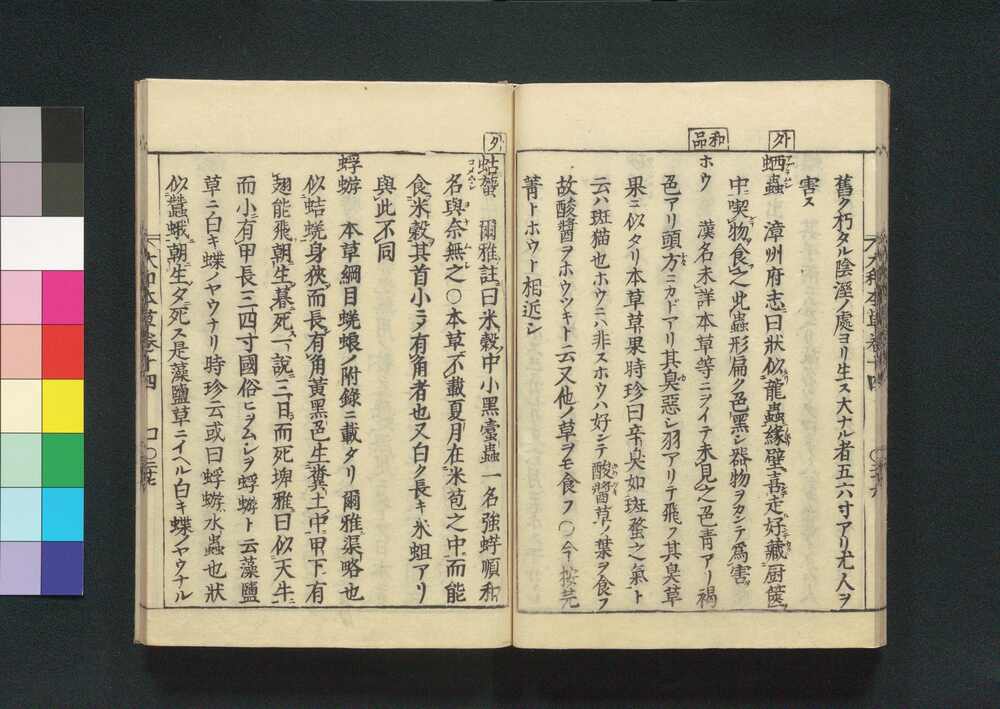 舊ク朽タル陰溼ノ處ヨリ生ス大ナル者五六寸アリ尤人ヲ
害ス
外
蜚蠊蟲 漳州府志曰狀似龍蟲緣壁喜走好藏厨篋
中喫物食之此蟲形扁ク色黑シ器物ヲカシテ爲害
和品
ホウ 漢名未詳本草等ニヲイテ未見之色青アリ褐
色アリ頭方ニカドアリ其臭惡シ羽アリテ飛フ其臭草
果ニ似タリ本草草果時珍曰辛臭如斑蝥之氣ト
云ハ斑猫也ホウニハ非スホウハ好シテ酸醬草ノ葉ヲ食フ
故酸醬ヲホウツキト云又他ノ草ヲモ食フ○今按芫
菁トホウト相近シ
大和本草卷十四
夕
蛄䗐 爾雅註曰米穀中小黑蠹蟲一名強蛘順和
コメムシ
名與奈無之○本草不載夏月在米苞之中而能
食米穀其首小ラ有角者也又白ク長キ米蛆アリ
與此不同
蜉蝣 本草綱目蜣蜋ノ附錄ニ載タリ爾雅渠略也
似蛣蜣身狹而長有角黃黑色生糞土中甲下有
翅能飛朝生暮死一說三日而死埤雅曰似天牛
而小有甲長三四寸國俗ヒヲムシヲ蜉蝣ト云藻鹽
草ニ白キ蝶ノヤウナリ時珍云或曰蜉蝣水蟲也狀
似蠶蛾朝生夕死ス是藻鹽草ニイヘル白キ蝶ノヤウナル
大和本草卷十四